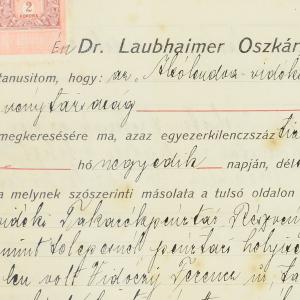 2
KORONA
Én Dr. Laubhaimer Oszkár
tanusitom, hogy: az Alsólendva-vidéki
részvénytársaság
megkeresésére ma, azaz egyezerkilenczszáz tiz
hó negyedik napján, dél
a melynek szószerinti másolata a tulsó oldalon
vidéki Takarékpénztár Részvény
mint telepesnek pénztári helyisé
len volt Vidóczy Ferenc úr, ta